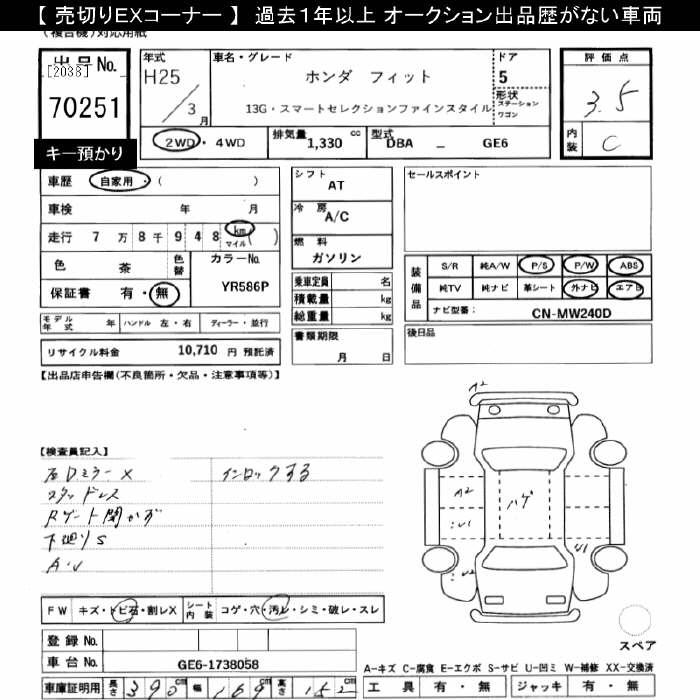 【 売切りEXコーナー 】 過去1年以上 オークション出品歴がない車両
(複合機)対応用紙
出品No.
[2038]
70251
キー預かり
年式
H25
3 月
車名・グレード
ホンダ フィット
13G・スマートセレクションファインスタイル
ドア
5
形状
ステーション
ワゴン
評価点
3.5
内装
C
2WD ・ 4WD
排気量 1,330 cc
型式
DBA – GE6
車歴 自家用・( )
車検 年 月
走行 7 万 8 千 9 4 8 km マイル ( )
色 茶
色替
カラーNo.
YR586P
保証書 有・無
シフト
AT
冷房
A/C
燃料
ガソリン
乗車定員 名
積載量 kg
総重量 kg
セールスポイント
装備品
S/R 純A/W P/S P/W ABS
純TV 純ナビ 革シート 外ナビ エアB
ナビ型番: CN-MW240D
モデル年式 年 ハンドル 左・右 ディーラー・並行
リサイクル料金 10,710 円 預託済
書類期限
月 日
後日品
【出品店申告欄(不良箇所・欠品・注意事項等)】
【検査員記入】
スタッドレス
Rゲート開かず
下廻りS
A・U
インロックする
A2
A2
ハゲ
U1
FW キズ・トビ石・割レX
シート内装 コゲ・穴・汚レ・シミ・破レ・スレ
登録No.
車台No. GE6-1738058
車庫証明用 長さ 390 cm 幅 169 cm 高さ 152 cm
スペア
A-キズ C-腐食 E-エクボ S-サビ U-凹ミ W-補修 XX-交換済
工具 有・無 ジャッキ 有・無